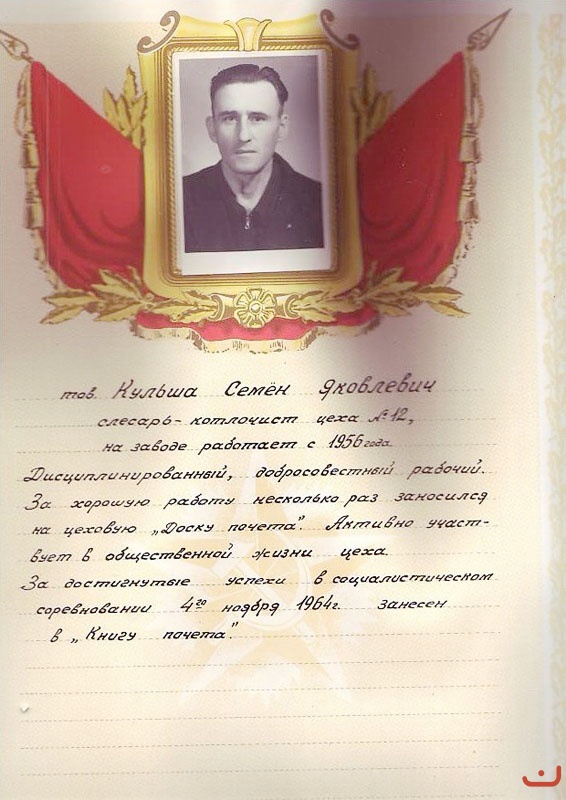 тов. Кульша Семён Яковлевич
слесарь-котлочист цеха №12,
на заводе работает с 1956 года.
Дисциплинированный, добросовестный рабочий.
За хорошую работу несколько раз заносился
на цеховую „Доску почета". Активно участ-
вует в общественной жизни цеха.
За достигнутые успехи в социалистическом
соревновании 4го ноября 1964г. занесен
в „Книгу почета".